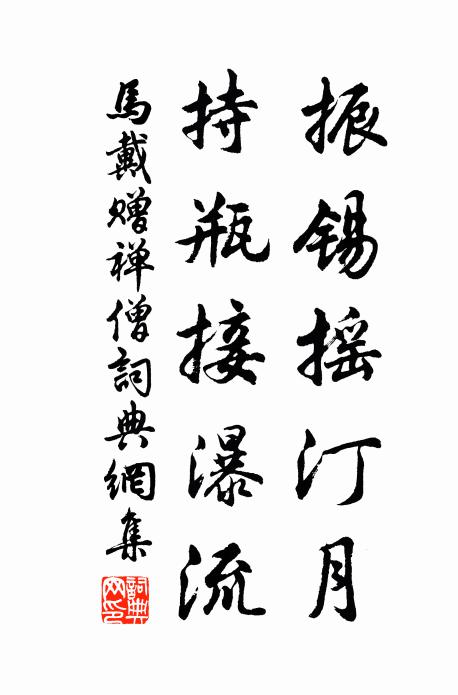 振锡摇汀月
持瓶接瀑流
馬戴赠禅僧詞典網集
詞典网印